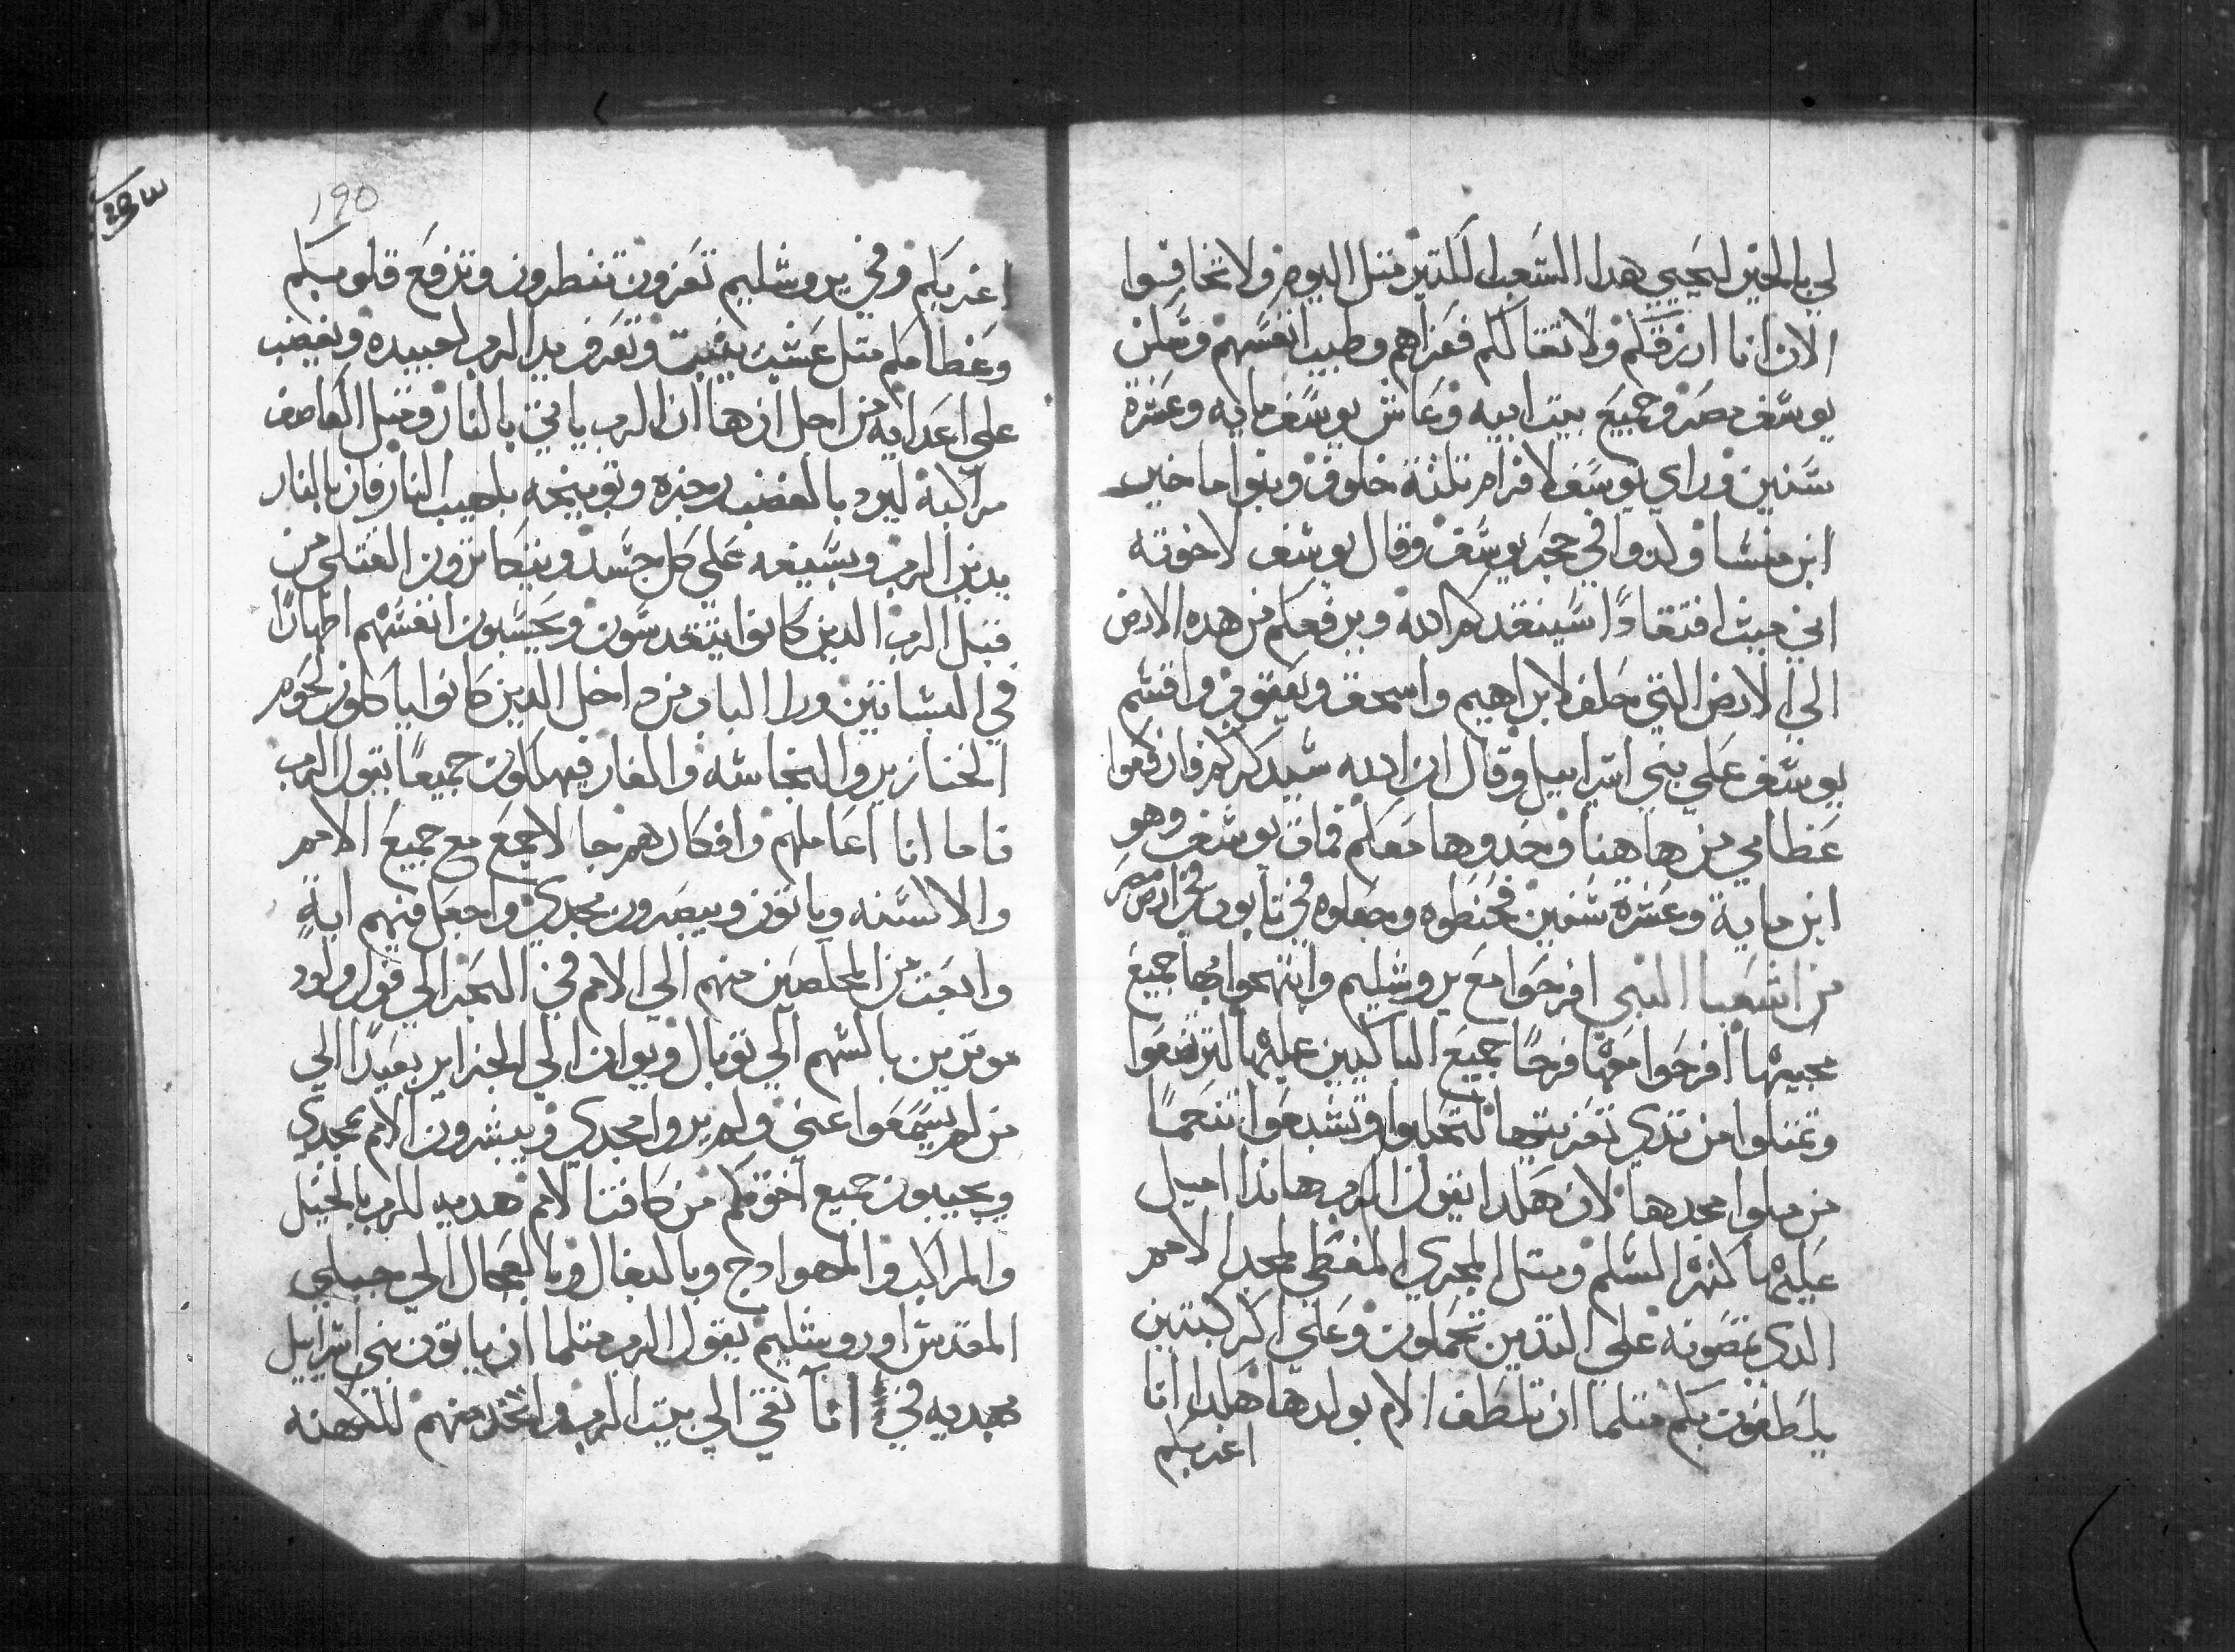 لي بالخير ليحيي هدا الشعب لكتير متل اليوم ولا تخافوا
الان انا ارزقكم ولا تقالكم فعزاهم وطيب انفسهم وسكن
يوسف مصر وجميع بيت ابيه وعاش يوسف مايه وعشرة
سنين وراي يوسف لافرام تلتة خلوف وبنوا ماخير
ابن منشا ولدوا في حجر يوسف وقال يوسف لاخوته
اني ميت افتقادًا سيفتقدكم الله ويرفعكم من هده الارض
الي الارض التي حلف لابراهيم واسحق ويعقوب واقسم
يوسف علي بني اسراييل وقال ان الله سيدكركم فارفعوا
عظامي من هاهنا وخدوها معكم فمات يوسف وهو
ابن ماية وعشرة سنين فحنطوه وجعلوه في تابوت في ارض مصر
من اشعيا النبي افرحوا مع يروشليم وابتهجوا بها جميع
محبيها افرحوا معها فرحًا جميع الباكيين عليها لترضعوا
وتمتلوا من تدي تعزيتها لتحلبوا وتشبعوا تنعمًا
من ملوا مجدها لان هكدا يقول الرب هاندا اميل
عليها كنهر السلم ومتل المجري المغطي لمجد الامم
الدي تمصونه علي التديين تحملون وعلي الركبتين
يلطفون بكم متلما ان تلطف الام بولدها هكدا انا
اعزيكم
190
اعزيكم وفي يروشليم تعزون تنظرون وتزفع قلوبكم
وعظامكم متل عشب ينبت وتعرف يد الرب لعبيده ويغضب
علي اعدايه من اجل ان ها ان الرب ياتي بالنار ومتل العاصف
مراكبه ليرد بالغضب رجزه وتوبيخه بلهيب النار فان بالنار
يدين الرب وبسيفه علي كل جسد ويتكاترون القتلي من
قبل الرب الدين كانوا يتقدسون ويحسبون انفسهم اطهارًا
في البساتين ورا الباب من داخل الدين كانوا ياكلون لحوم
الخنازير والنجاسه والفار فيهلكون جميعًا يقول الرب
فاما انا اعمالهم وافكارهم جا لاجمع مع جميع الامم
والالسنه وياتون ويبصرون مجدي واجعل فيهم ايةً
وابعت من المخلصين منهم الي الامم في البحر الي فول ولود
موترين بالسهم الي توبال ويوان الي الجزاير بعيدًا الي
من لم يسمعوا عني ولم يروا مجدي ويبشرون الامم بمجدي
ويجيبون جميع اخوتكم من كافت الامم هديه للرب بالخيل
والمراكب والهوادج وبالبغال وبالعجال الي جبلي
المقدس اوروشليم يقول الرب متلما ان ياتون بني اسراييل
بهديه في انآ نقي الي بيت الرب واتخد منهم للكهنه